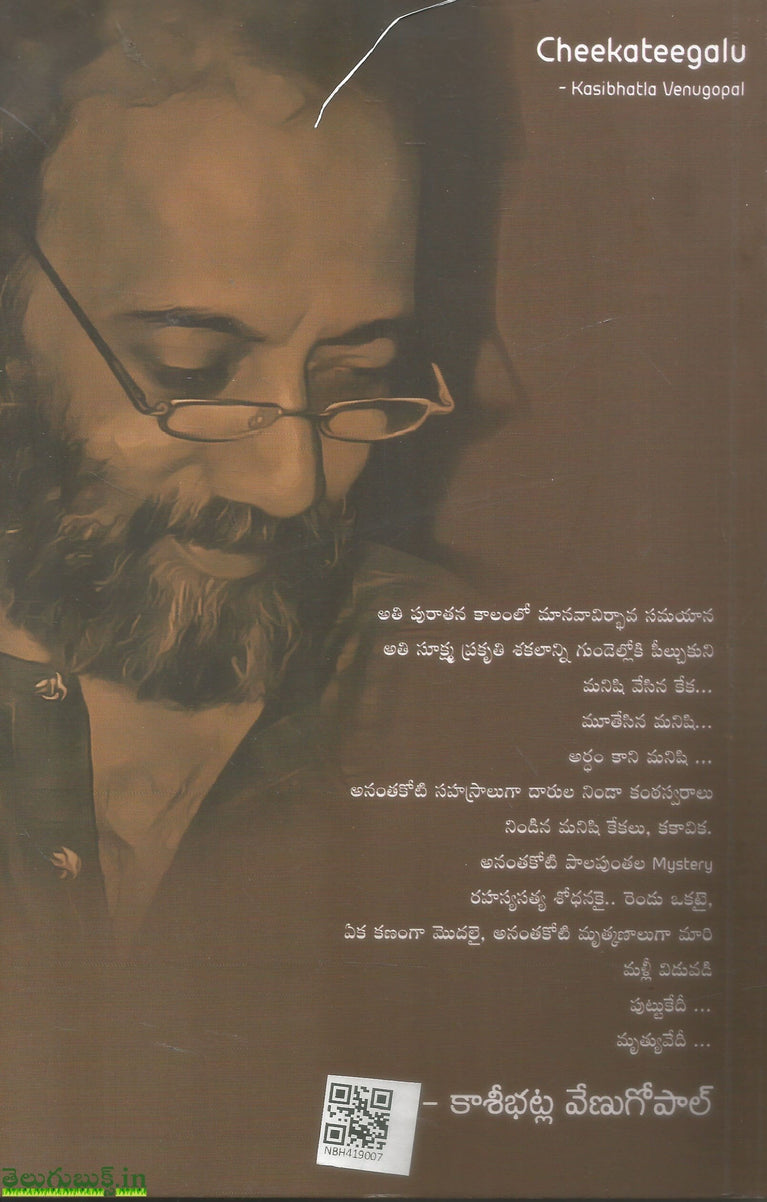 Cheekateegalu
- Kasibhatla Venugopal
అతి పురాతన కాలంలో మానవావిర్భావ సమయాన
అతి సూక్ష్మ ప్రకృతి శకలాన్ని గుండెల్లోకి పీల్చుకుని
మనిషి వేసిన కేక...
మూతేసిన మనిషి...
అర్ధం కాని మనిషి ...
అనంతకోటి సహస్రాలుగా దారుల నిండా కంఠస్వరాలు
నిండిన మనిషి కేకలు, కకావిక.
అనంతకోటి పాలపుంతల Mystery
రహస్యసత్య శోధనకై.. రెండు ఒకటై,
ఏక కణంగా మొదలై, అనంతకోటి మృత్కణాలుగా మారి
మళ్లీ విడువడి
పుట్టుకేదీ ...
మృత్యువేదీ ...
- కాశీభట్ల వేణుగోపాల్
NBH419007
తెలుగుబుక్స్.in